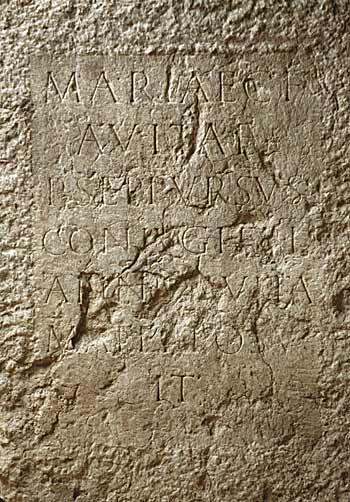 MARIAE C F
AVITAE
P SEPT VRSVS
CONIVGI ET
AVITA
MATRI PO
IT